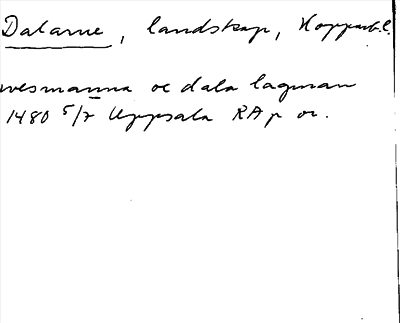 Dalarne, landskap, Kopparb.l.
wesmanna oc dala lagman
1480 5/7 Uppsala RAp or.